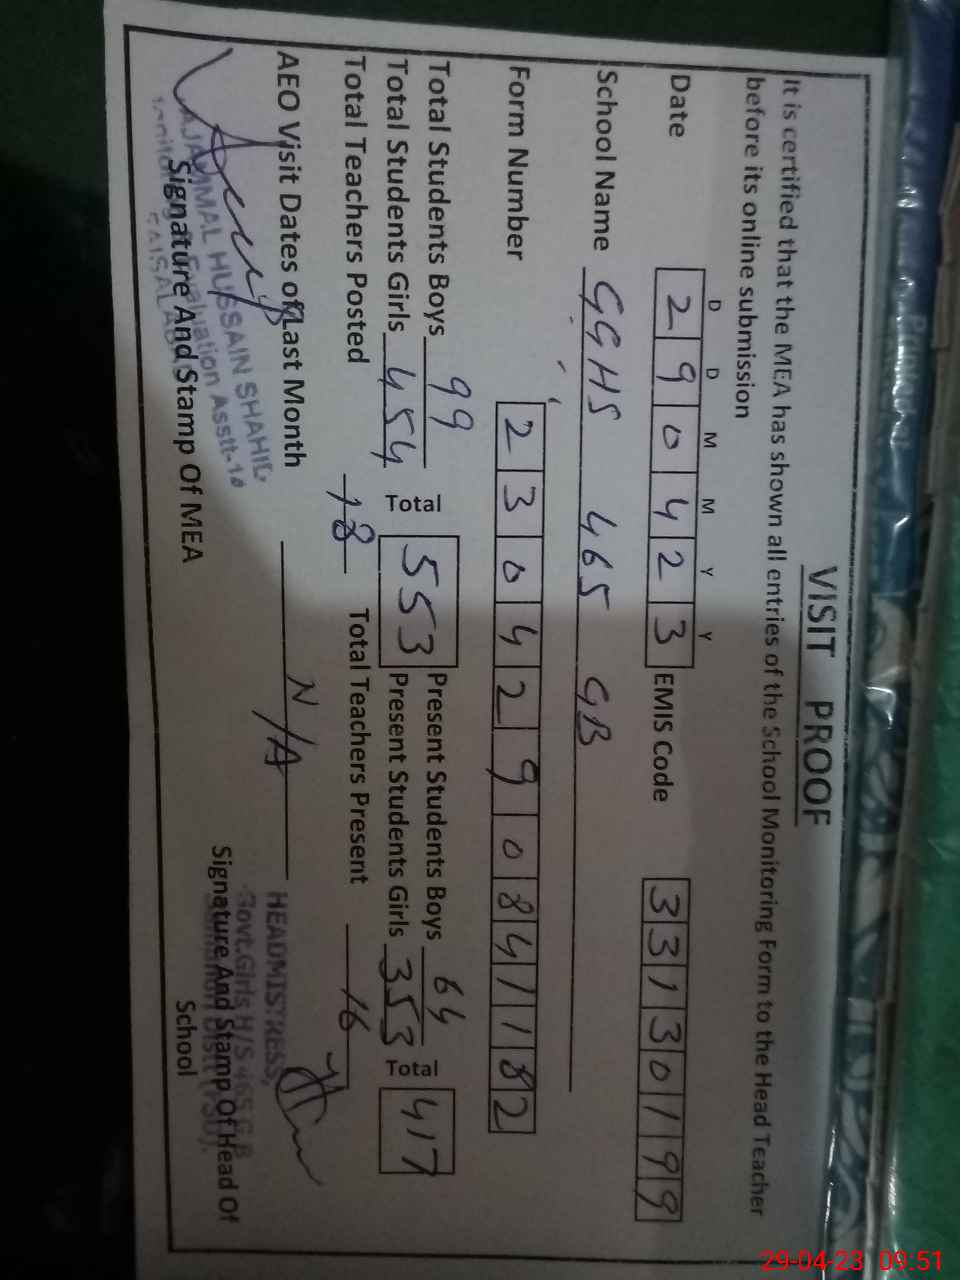 VISIT PROOF
It is certified that the MEA has shown all entries of the School Monitoring Form to the Head Teacher
before its online submission
D D M M Y Y
Date 2 9 0 4 2 3 EMIS Code 3 3 1 3 0 1 9 9
School Name GGHS 465 GB
Form Number 2 3 0 4 2 9 0 8 4 1 1 8 2
Total Students Boys 99 Present Students Boys 64
Total Students Girls 454 Total 553 Present Students Girls 353 Total 417
Total Teachers Posted 18 Total Teachers Present 16
AEO Visit Dates of Last Month N/A
HEADMISTRESS,
Govt.Girls H/S 465 G.B
AJAMMAL HUSSAIN SHAHID
Signature And Stamp Of MEA
Signature And Stamp Of Head Of
School
29-04-23 09:51